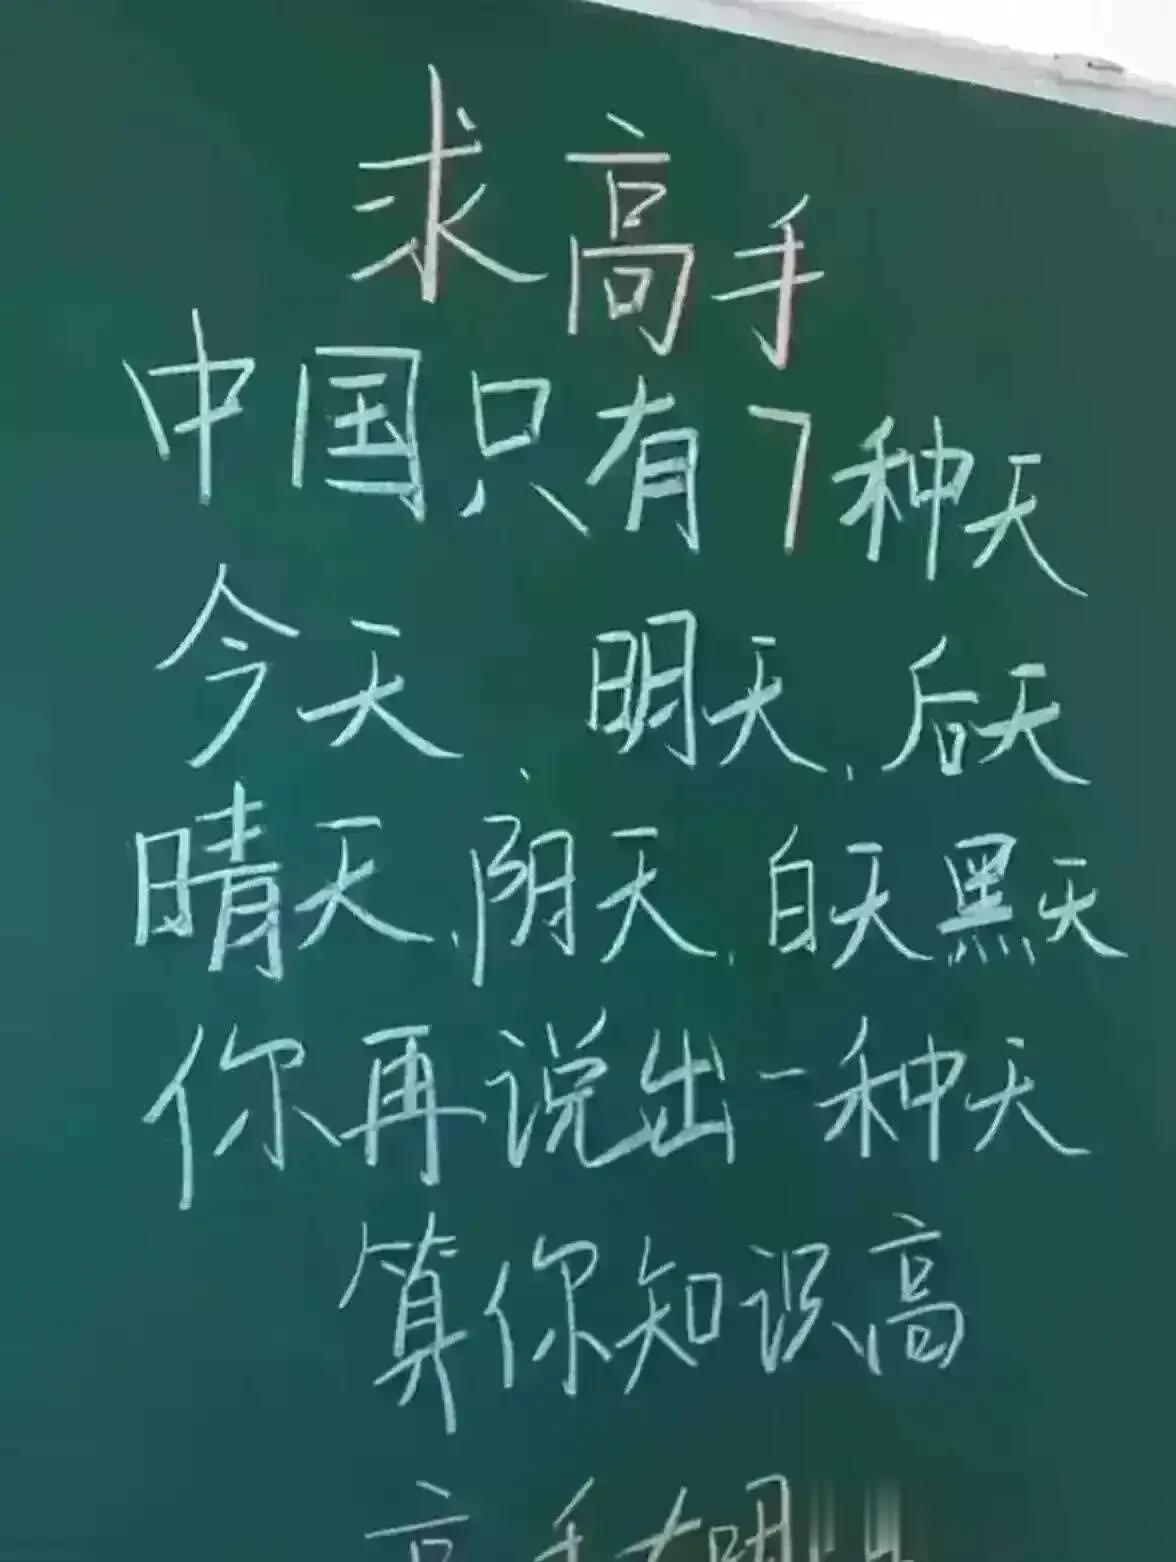 求高手
中国只有7种天
今天、明天、后天
晴天、阴天、白天黑天
你再说出一种天
算你知识高
高手在